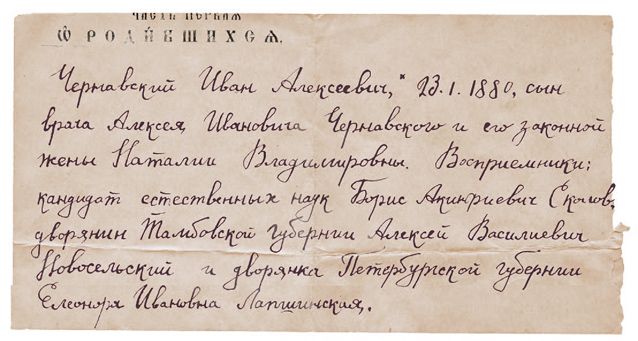 ЧАСТЬ ПЕРВАЯ
Ѿ РОДИ́ВШИХСЯ.
Чернавский Иван Алексеевич, * 23.1.1880, сын
врача Алексея Ивановича Чернавского и его законной
жены Наталии Владимировны. Восприемники:
кандидат естественных наук Борис Акинфиевич Соколов,
дворянин Тамбовской губернии Алексей Василиевич
Новосельский и дворянка Петербургской губернии
Елеонора Ивановна Лапшинская.